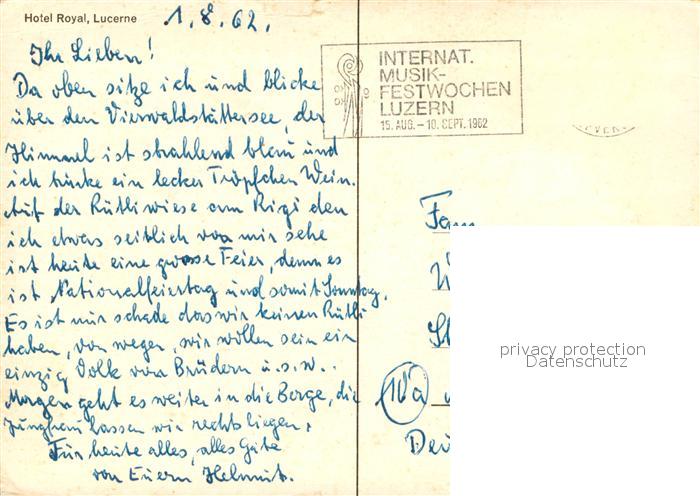 Hotel Royal, Lucerne
1.8.62.
Ihr Lieben!
Da oben sitze ich und blicke
über den Vierwaldstättersee, der
Himmel ist strahlend blau und
ich trinke ein lecker Tröpfchen Wein.
Auf der Rütliwiese am Rigi den
ich etwas seitlich von mir sehe
ist heute eine grosse Feier, denn es
ist Nationalfeiertag und somit Sonntag.
Es ist nur schade das wir keinen Rütli
haben, von wegen, wir wollen sein ein
einzig Volk von Brüdern u.s.w..
Morgen geht es weiter in die Berge, die
Jungfrau lassen wir rechts liegen.
Für heute alles, alles Gute
von Euerm Helmut.
INTERNAT.
MUSIK-
FESTWOCHEN
LUZERN
15. AUG. – 10. SEPT. 1962
Fam
privacy protection
Datenschutz